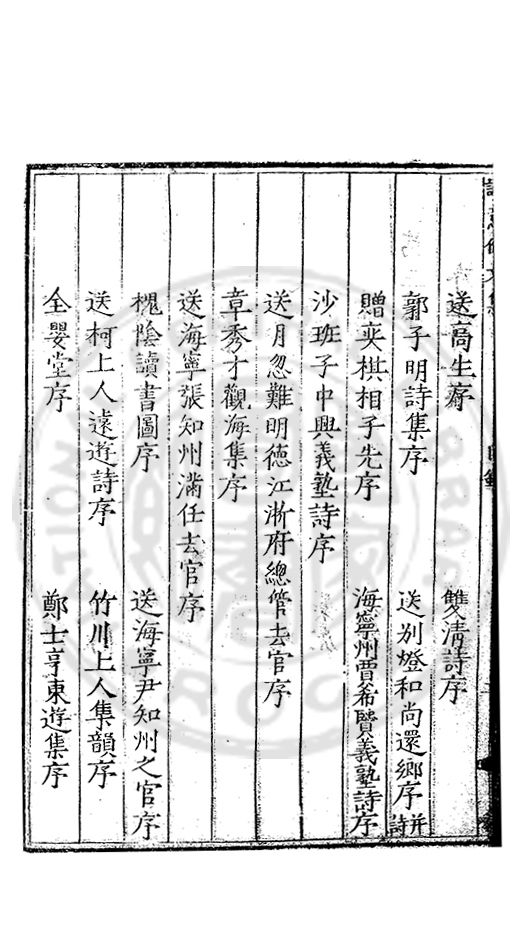 送高生序
雙清詩序
郭子明詩集序
送別燈和尚還鄉序 并詩
贈奕棋相子先序
海寧州賈希賢義塾詩序
沙班子中興義塾詩序
送月忽難明德江浙府總管去官序
章秀才觀海集序
送海寧張知州滿任去官序
槐陰讀書圖序
送海寧尹知州之官序
送柯上人遠遊詩序
竹川上人集韻序
全嬰堂序
鄭士亨東遊集序